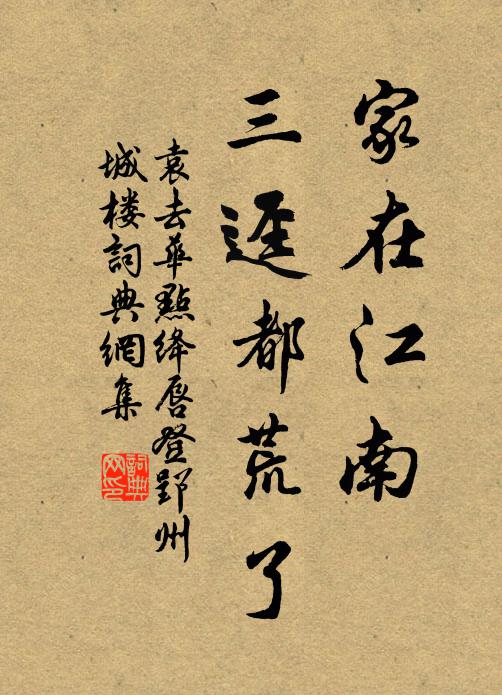 家在江南
三迳都荒了
袁去華點絳唇登郢州
城楼詞典網集
詞典网印